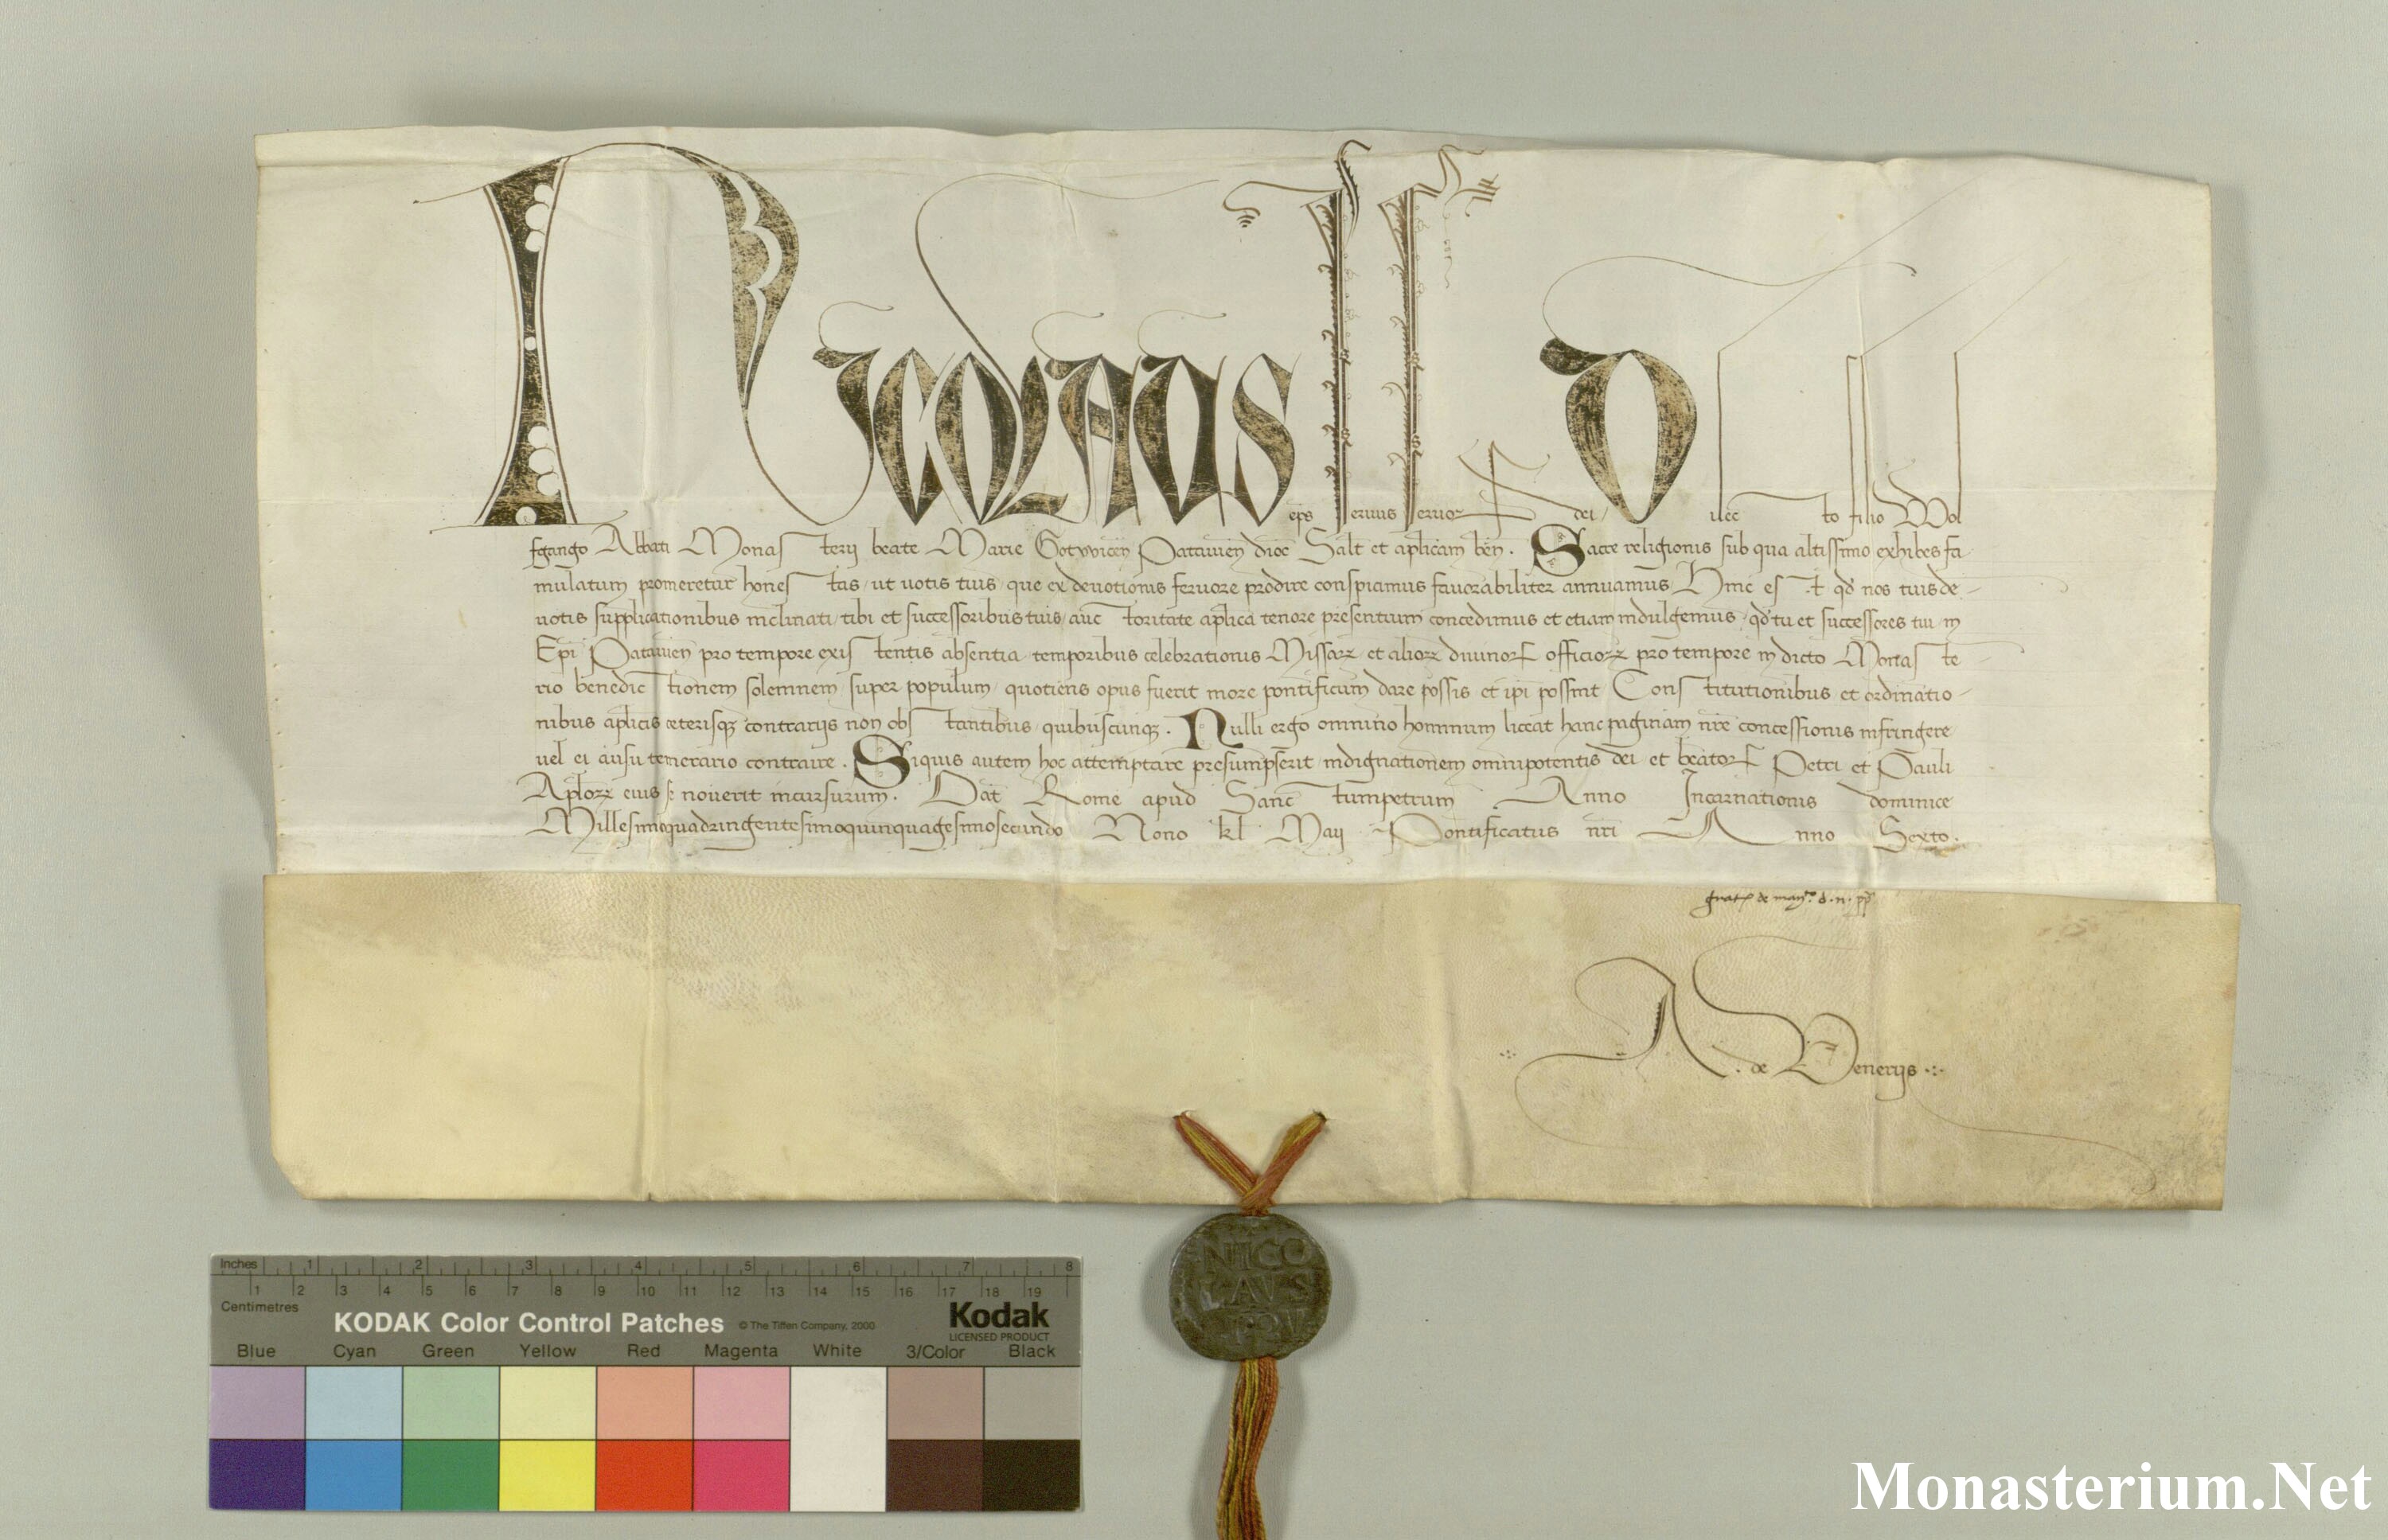 Nicolaus eps seruus seruoꝝ dei dilecto filio Wol
fgango Abbati Monasterij beate Marie Gotwicen̄ Patauien̄ dioc̄ Salt̄ et aplicam ben̄. Sacre religionis sub qua altissimo exhibes fa
mulatum promeretur honestas, ut uotis tuis, que ex deuotionis feruore prodire conspicimus fauorabiliter annuamus, Hinc est qđ nos tuis de-
uotis supplicationibus inclinati, tibi et successoribus tuis, auctoritate aplica tenore presentium concedimus et etiam indulgemus, qđ tu et successores tui, in
Epi Patauien̄ pro tempore existentis absentia, temporibus celebrationis Missaꝝ, et alioꝝ diuinoꝝ officioꝝ pro tempore in dicto Monaste
rio benedictionem solemnem, super populum, quotiens opus fuerit more pontificum dare possis, et ipi possint, Constitutionibus, et ordinatio-
nibus aplicis ceterisqꝫ contrarijs non obstantibus, quibuscunqꝫ. Nulli ergo omnino hominum liceat hanc paginam nr̄e concessionis infringere
uel ei ausu temerario contraire. Siquis autem hoc attemptare presumpserit, indignationem omnipotentis dei, et beatoꝝ Petri et Pauli
Aploꝝ eius se nouerit incursurum. Dat̄ Rome apud Sanctumpetrum Anno Incarnationis dominice
Millesimoquadringentesimoquinquagesimosecundo Nono kl Maij Pontificatus nr̄i Anno Sexto.
de man.to d. n. pp
A. de Venerijs
NICO
LAVS
Inches 1 2 3 4 5 6 7 8
1 2 3 4 5 6 7 8 9 10 11 12 13 14 15 16 17 18 19
Centimetres
KODAK Color Control Patches © The Tiffen Company, 2000 Kodak
LICENSED PRODUCT
Blue Cyan Green Yellow Red Magenta White 3/Color Black
Monasterium.Net